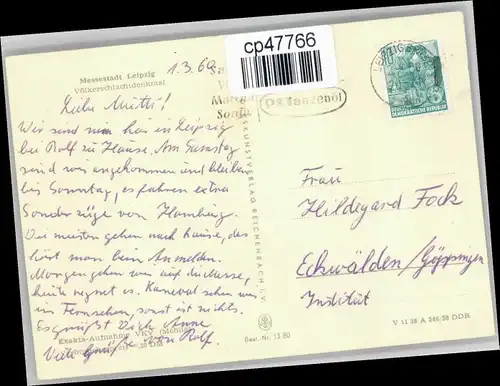 cp47766
Messestadt Leipzig
Völkerschlachtdenkmal
1.3.60
Liebe Mutti!
Wir sind nun hier in Leipzig
bei Rolf zu Hause. Am Samstag
sind wir angekommen und bleiben
bis Sonntag, es fahren extra
Sonderzüge von Hamburg.
Die meisten gehen nach Hause, das
hört man beim Anmelden.
Morgen gehen wir auf die Messe,
heute regnet es. Karneval sehen wir
im Fernsehen, sonst ist nichts.
Es grüßt Dich Anne
Viele Grüße von Rolf.
Exakta-Aufnahme VKV
Pflanzenöl
LEIPZIG
DEUTSCHE DEMOKRATISCHE REPUBLIK
KUNSTVERLAG REICHENBACH I. V.
Best.-Nr. 13 80
Frau
Hildegard Fock
Eckwälden/Göppingen
Institut
V 11 28 A 246/58 DDR